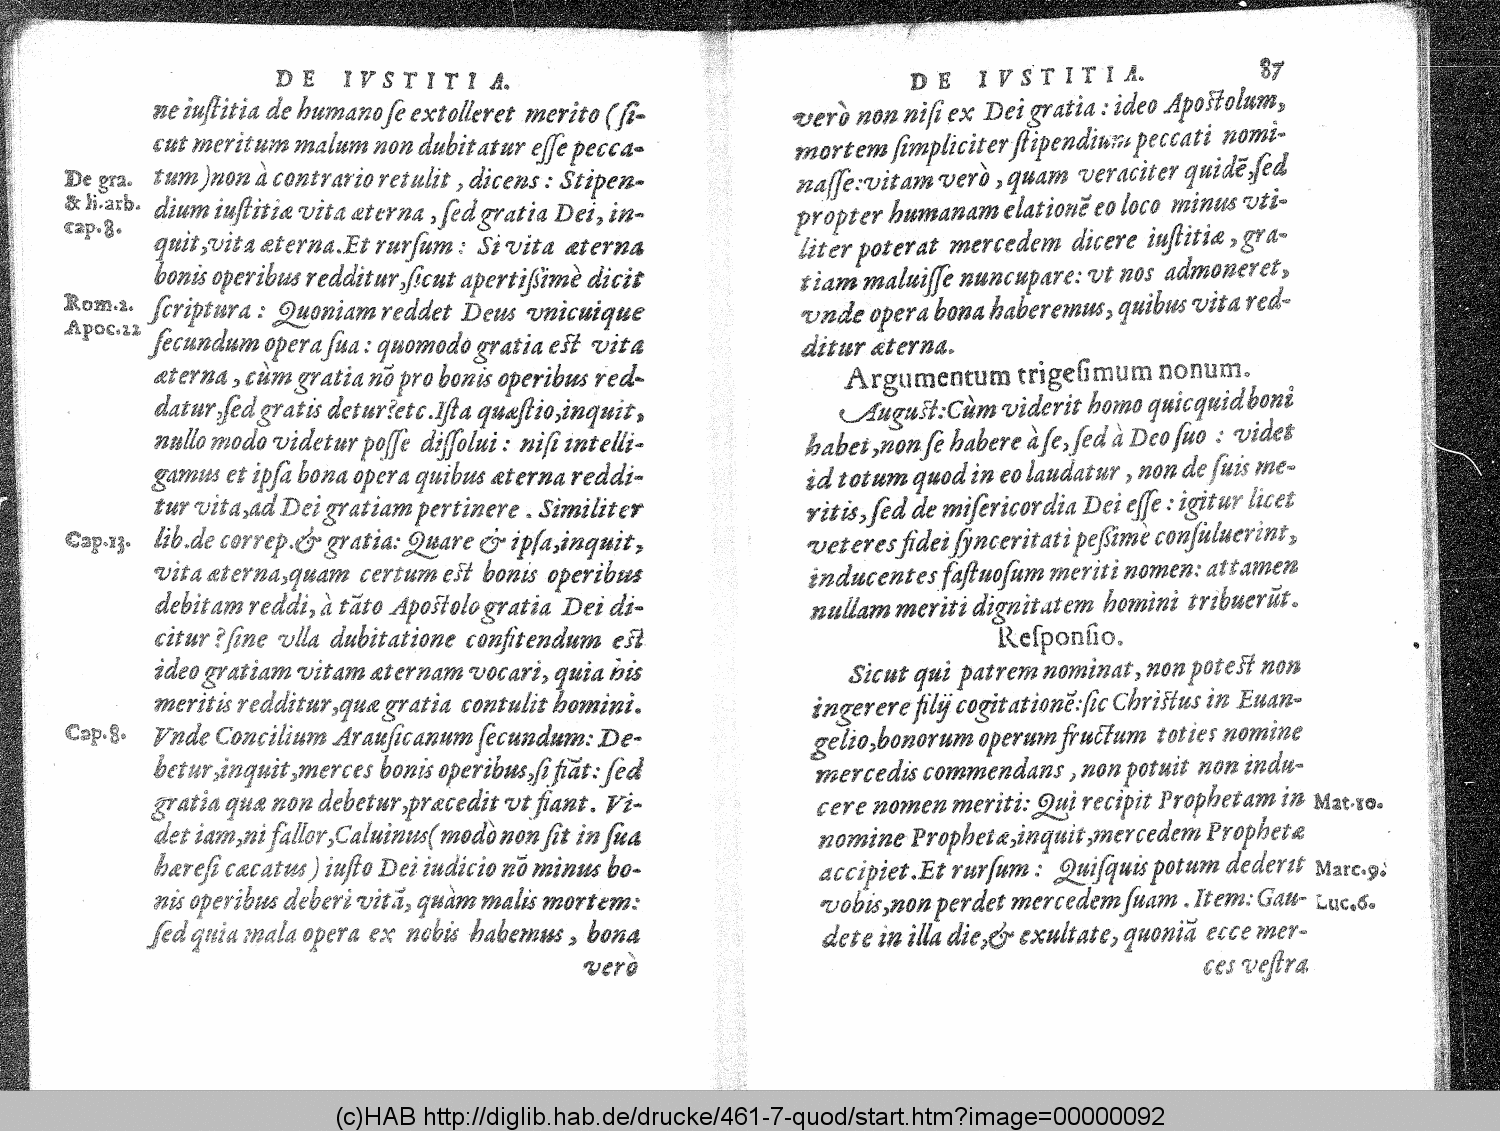 DE IVSTITIA.
ne iuſtitia de humano ſe extolleret merito (ſi-
cut meritum malum non dubitatur eſſe pecca-
tum) non à contrario retulit, dicens: Stipen-
dium iuſtitiæ vita æterna, ſed gratia Dei, in-
quit, vita æterna. Et rurſum: Si vita æterna
bonis operibus redditur, ſicut apertiſſimè dicit
ſcriptura: Quoniam reddet Deus vnicuique
ſecundum opera ſua: quomodo gratia eſt vita
æterna, cùm gratia nō pro bonis operibus red-
datur, ſed gratis detur? etc. Iſta quæſtio, inquit,
nullo modo videtur poſſe diſſolui: niſi intelli-
gamus et ipſa bona opera quibus æterna reddi-
tur vita, ad Dei gratiam pertinere. Similiter
lib. de correp. & gratia: Quare & ipſa, inquit,
vita æterna, quam certum eſt bonis operibus
debitam reddi, à tāto Apoſtolo gratia Dei di-
citur? ſine vlla dubitatione confitendum eſt
ideo gratiam vitam æternam vocari, quia his
meritis redditur, quæ gratia contulit homini.
Vnde Concilium Arauſicanum ſecundum: De-
betur, inquit, merces bonis operibus, ſi fiāt: ſed
gratia quæ non debetur, præcedit vt fiant. Vi-
det iam, ni fallor, Caluinus (modò non ſit in ſua
hæreſi cæcatus) iuſto Dei iudicio nō minus bo-
nis operibus deberi vitā, quàm malis mortem:
ſed quia mala opera ex nobis habemus, bona
verò
De gra.
& li. arb.
cap. 8.
Rom. 2.
Apoc. 22
Cap. 13.
Cap. 8.
DE IVSTITIA. 87
verò non niſi ex Dei gratia: ideo Apoſtolum,
mortem ſimpliciter ſtipendium peccati nomi-
naſſe: vitam verò, quam veraciter quidē, ſed
propter humanam elationē eo loco minus vti-
liter poterat mercedem dicere iuſtitiæ, gra-
tiam maluiſſe nuncupare: vt nos admoneret,
vnde opera bona haberemus, quibus vita red-
ditur æterna.
Argumentum trigeſimum nonum.
Auguſt: Cùm viderit homo quicquid boni
habet, non ſe habere à ſe, ſed à Deo ſuo: videt
id totum quod in eo laudatur, non de ſuis me-
ritis, ſed de miſericordia Dei eſſe: igitur licet
veteres fidei ſynceritati peſſimè conſuluerint,
inducentes faſtuoſum meriti nomen: attamen
nullam meriti dignitatem homini tribuerūt.
Reſponſio.
Sicut qui patrem nominat, non poteſt non
ingerere filij cogitationē: ſic Chriſtus in Euan-
gelio, bonorum operum fructum toties nomine
mercedis commendans, non potuit non indu-
cere nomen meriti: Qui recipit Prophetam in
nomine Prophetæ, inquit, mercedem Prophetæ
accipiet. Et rurſum: Quiſquis potum dederit
vobis, non perdet mercedem ſuam. Item: Gau-
dete in illa die, & exultate, quoniā ecce mer-
ces veſtra
Mat. 10.
Marc. 9.
Luc. 6.
(c)HAB http://diglib.hab.de/drucke/461-7-quod/start.htm?image=00000092